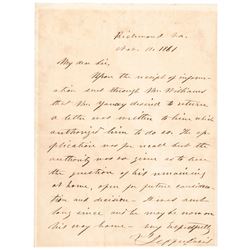 Richmond Va.
Nov. 11. 1861
My dear Sir,
Upon the receipt of infor-
mation sent through Mr Williams
that Mr. Yancey desired to return
a letter was written to him which
authorized him to do so. The ap-
plication was for recall but the
authority was so given as to leave
the question of his remaining
at home, open for future consider-
ation and decision. It was sent
long since and he may be now on
his way home - Very respectfully
Jefferson